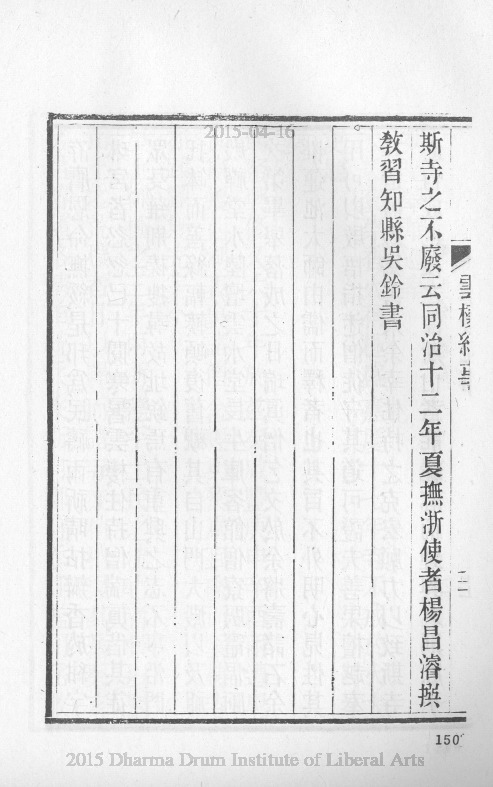 斯寺之不廢云同治十二年夏撫浙使者楊昌濬撰
教習知縣吳鈴書
雲棲紀事
二
150
2015-04-16
2015 Dharma Drum Institute of Liberal Arts